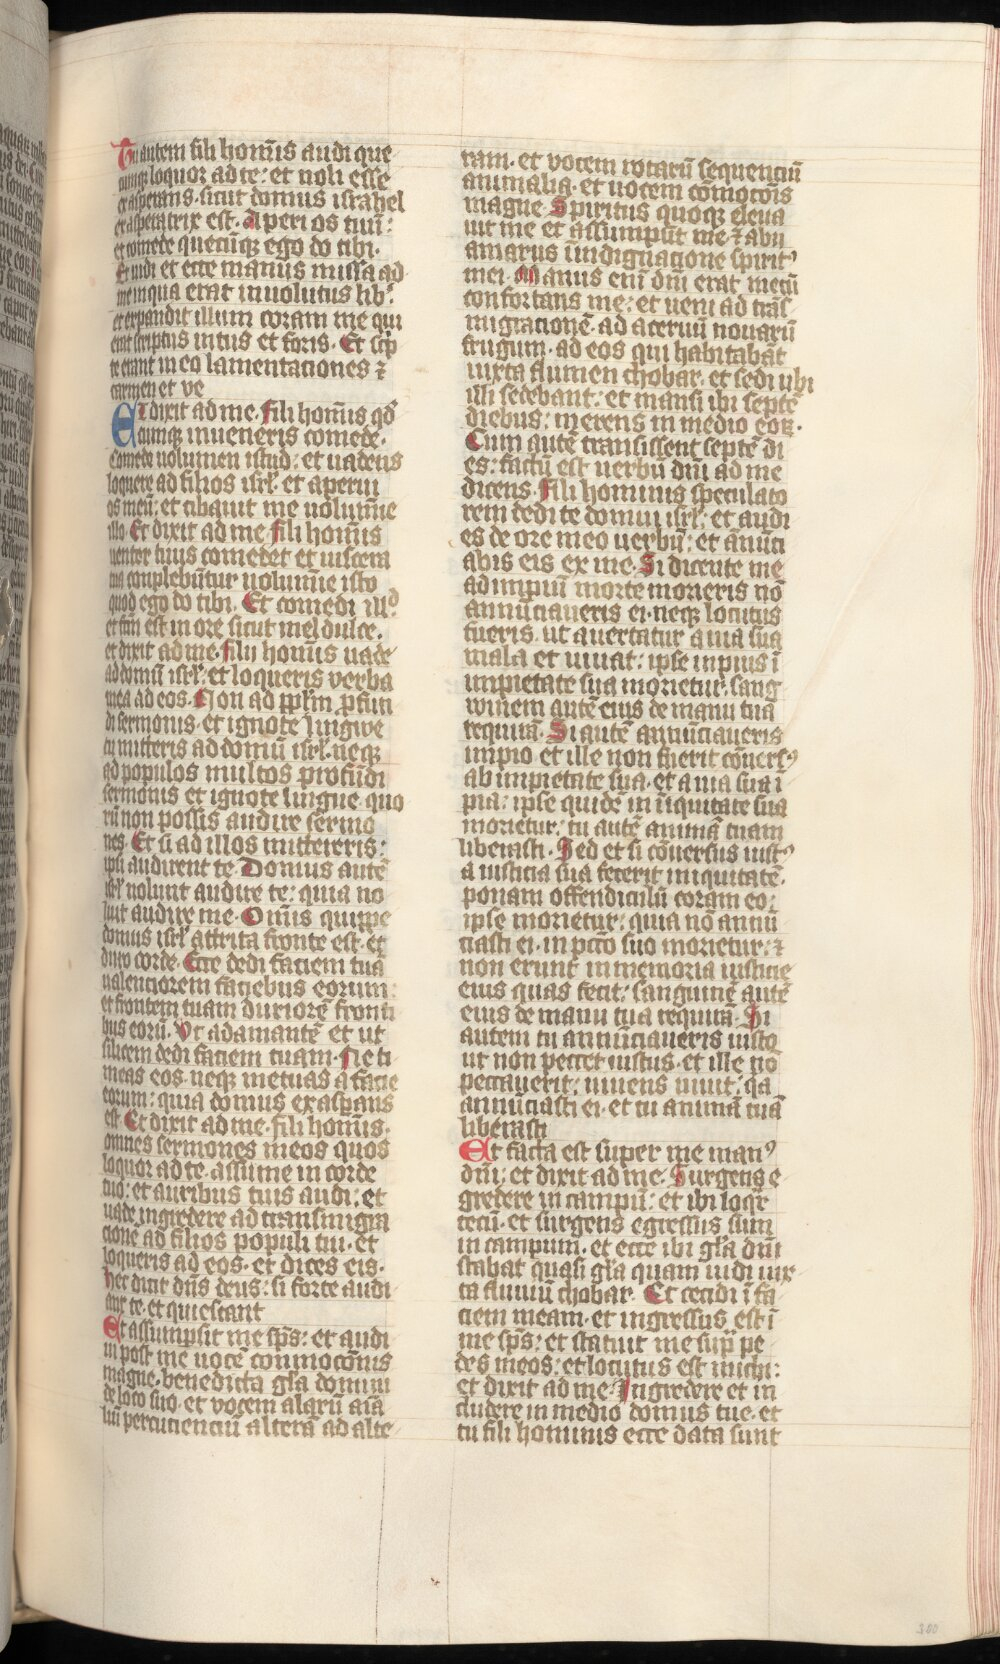 Tu autem fili hom̄is audi que
cumq; loquor ad te: et noli esse
exasperans. sicut domus israhel
exasperatrix est. Aperi os tuū:
et comede quecūq; ego do tibi.
Et uidi et ecce manus missa ad
me in qua erat inuolutus lib̄.
et expandit illum coram me qui
erat scriptus intus et foris. Et scp̄
te erant in eo lamentaciones ⁊
carmen et ve
Et dixit ad me. fili hom̄is qd̄
cumq; inueneris comede.
Comede uolumen istud: et uadens
loquere ad filios isrl̄. et aperui
os meū: et cibauit me uolumīe
illo. Et dixit ad me. fili hom̄is
uenter tuus comedet et uiscera
tua complebūtur uolumīe isto
quod ego do tibi. Et comedi illd̄
et fc̄m est in ore sicut mel dulce.
et dixit ad me. fili hom̄is uade
ad domū isrl̄: et loqueris verba
mea ad eos. Non ad pp̄lm p̄fun
di sermonis. et ignote lingwe
tu mitteris ad domū isrl̄. neq;
ad populos multos profūdi
sermonis et ignote lingue. quo
rū non possis audire sermo
nes. Et si ad illos mittereris:
ipsi audirent te. Domus autē
isrl̄ nolunt audire te: quia no
lūt audire me. Om̄is quippe
domus isrl̄ attrita fronte est. et
duro corde. Ecce dedi faciem tuā
ualenciorem faciebus eorum:
et frontem tuam duriorē fronti
bus eorū. Vt adamantē et ut
silicem dedi faciem tuam. Ne ti
meas eos. neq; metuas a facie
eorum: quia domus exasp̄ans
est. Et dixit ad me. fili hom̄is.
omnes sermones meos quos
loquor ad te. assume in corde
tuo: et auribus tuis audi: et
uade ingredere ad transmigra
cionē ad filios populi tui. et
loqueris ad eos. et dices eis.
hec dicit dn̄s deus: si forte audi
ant te. et quiescant
Et assumpsit me sp̄s: et audi
ui post me uocē commocōnis
magne. benedicta gl̄a domini
de loco suo. et vocem alarū aīa
liū percucienciū alterā ad alte
ram. et vocem rotarū sequenciū
animalia. et uocem cōmocōis
magne. Spiritus quoq; eleua
uit me et assumpsit me. ⁊ abii
amarus ī indignacione spirit᾽
mei. Manus eni dn̄i erat mecū
confortans me: et ueni ad trās
migracionē. ad aceruū nouarū
frugum. ad eos qui habitabāt
iuxta flumen chobar. et sedi ubi
illi sedebant: et mansi ibi septē
diebus: merens in medio eoꝝ.
Cum autē transissent septē di
es: factū est uerbū dn̄i ad me
dicens. fili hominis speculato
rem dedi te domui isrl̄: et audi
es de ore meo uerbū: et anūci
abis eis ex me. Si dicente me
ad impiū morte morieris nō
annūciaueris ei. neq; locutus
fueris. ut auertatur a uia sua
mala et uiuat: ipse inpius ī
impietate sua morietur. sang
winem autē eius de manu tua
requirā. Si autē annūciaueris
impio. et ille non fuerit cōuers᾽
ab impietate sua. et a uia sua ī
pia: ipse quidē in iniquitate sua
morietur: tu autē animā tuam
liberasti. Sed et si cōuersus iust᾽
a iusticia sua fecerit iniquitatē.
ponam offendiculū coram eo:
ipse morietur: quia nō annū
ciasti ei. in pctō suo morietur: ⁊
non erunt in memoria iusticie
eius quas fecit: sanguinē autē
eius de manu tua requirā. Si
autem tu annūciaueris iusto
ut non peccet iustus. et ille nō
peccauerit: uiuens uiuit: qa
annūciasti ei. et tu animā tuā
liberasti
Et facta est super me man᾽
dn̄i: et dixit ad me. Surgens e
gredere in campū: et ibi loqr̄
tecū. et surgens egressus sum
in campum. et ecce ibi gl̄a dn̄i
stabat quasi gl̄a quam uidi iux
ta fluuiū chobar. Et cecidi ī fa
ciem meam. et ingressus est ī
me sp̄s: et statuit me sup̄ pe
des meos: et locutus est michi:
et dixit ad me. Ingredere et in
cludere in medio domus tue. et
tu fili hominis ecce data sunt
300